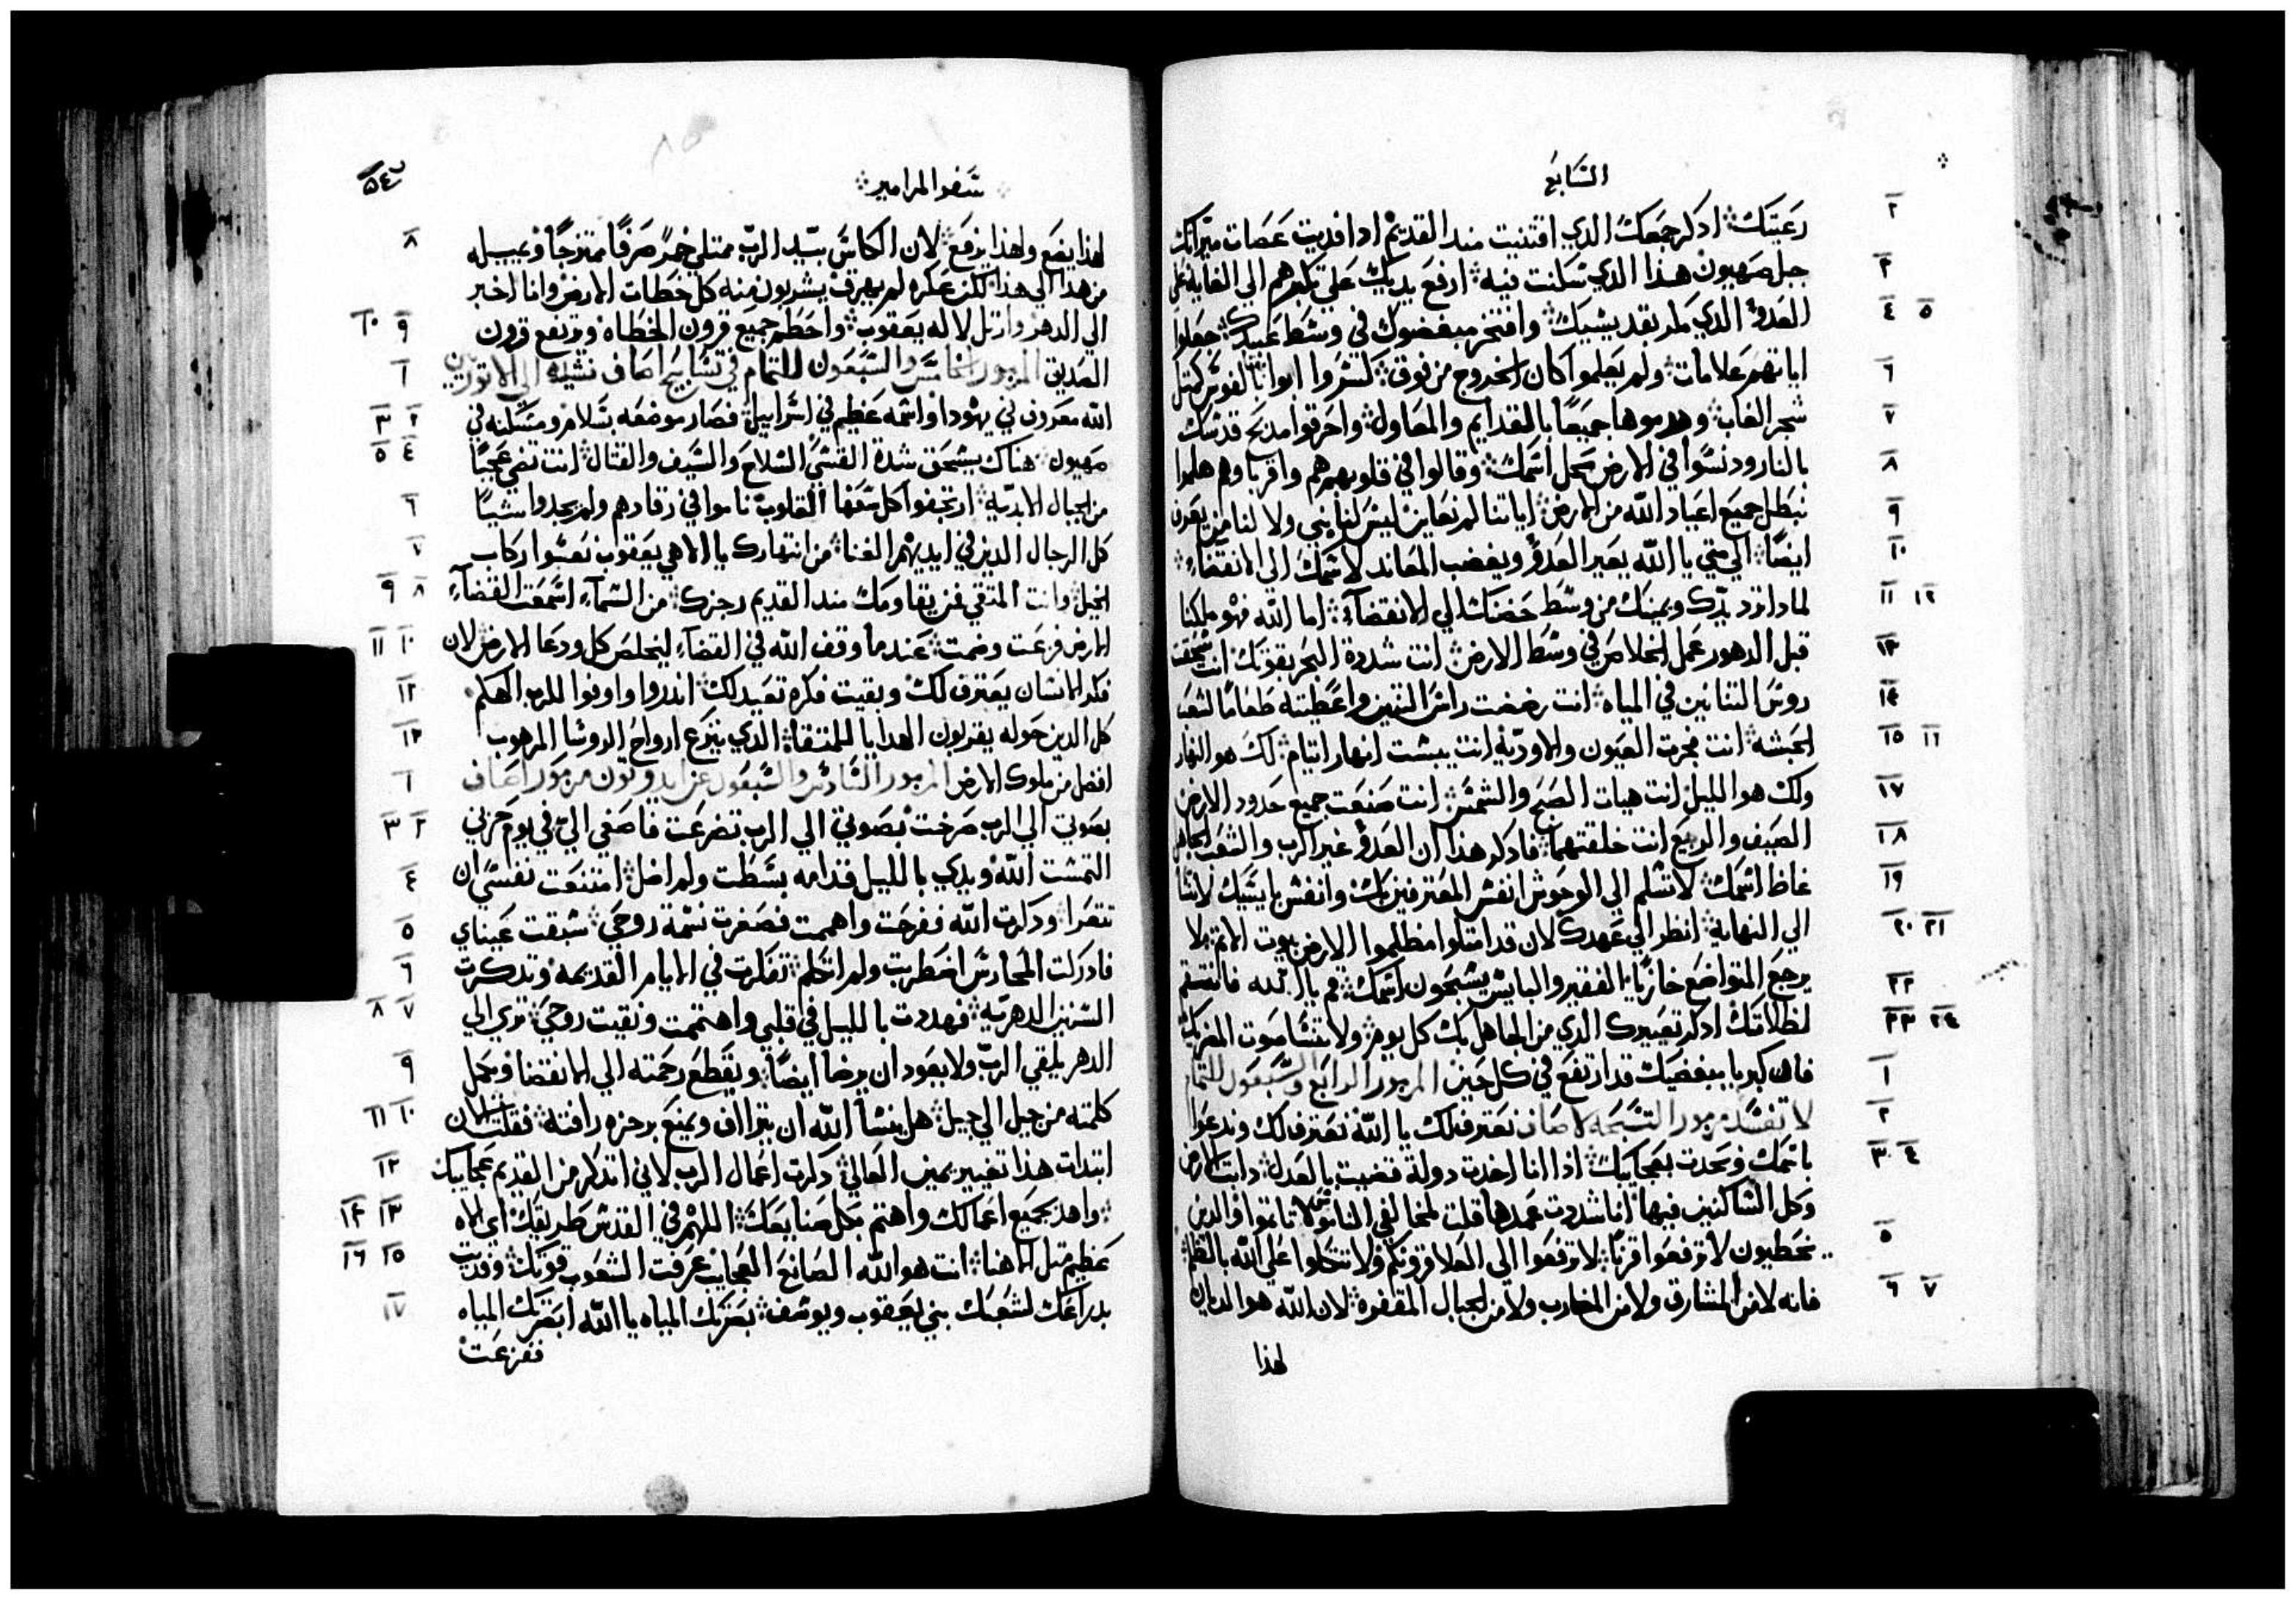 السَّابعُ
رعيتك اذكر جمعك الذي اقتنيت منذ القديم اذ افديت عصات ميراثك
٢
جبل صهيون هذا الذي سكنت فيه ارفع يديك على تكبرهم الي الغايه
٣
العدو الذي وافتخر مبغضوك في وسط عيدك جعلوا
٤ ٥
اياتهم علامات ولم يعلموا كان الخروج من فوق كسروا ابوابها بالفوس كمثل
٦
شجر الغاب وهدموها جميعًا بالقدايم والمعاول واحرقوا مدبح قدسك
٧
بالنار ودنسوا في الارض محل اسمك وقالوا في قلوبهم هم واقرباوهم هلموا
٨
نبطل جميع اعياد الله من الارض اياتنا لم نعاين ليس لنا نبي ولا لنا من يعرف
٩
ايضًا الي متي يا الله يعير العدو ويغضب المعاند لاسمك الي الانقضاء
١٠
لمادا ترد يدك ويمينك من وسط حضنك الي الانقضاء اما الله فهو ملكنا
١١ ١٢
قبل الدهور عمل الخلاص في وسط الارض انت شددة البحر بقوتك انت سحقت
١٣
روس التنانين في المياه انت رضضت راس التنين واعطيته طعامًا لشعب
١٤
الحبشه انت فجرت العيون والاوديه انت يبست انهار ايتام لك هو النهار
١٥ ١٦
ولك هو الليل انت هيات الصبح والشمس انت صنعت جميع حدود الارض
١٧
الصيف والربيع انت خلقتهما فادكر هذا ان العدو عير الرب والشعب الجاهل
١٨
غاظ اسمك لا تسلم الي الوحوش انفس المعترفين بك وانفس بايسيك لا تنسا
١٩
الي النهاية انظر الي عهدك لان قد امتلوا مظلموا الارض بيوت الاتم لا
٢٠ ٢١
يرجع المتواضع خازيًا الفقير والبايس يسبحون اسمك قم يا الله فانتقم
٢٢
لظلامتك ادكر تعييرك الذي من الجاهل بك كل يوم ولا تنسا صوت المغربك
٢٣ ٢٤
فان كبريا مبغضيك قد ارتفع في كل حين المزمور الرابع والسبعون للتمام
١
لا تفسد مزمور التسبحه لاصاف نعترف لك يا الله نعترف لك وندعوا
٢
باسمك ونحدث بعجايبك اذا انا اخدت دولة قضيت بالعدل دابت الارض
٣ ٤
وكل الساكنين فيها انا شددت عمدها قلت لمخالفي الناموس لا تاتموا والذين
يخطيون لا ترفعوا قرنًا لا ترفعوا الي العلا قرونكم ولا تتكلوا علي الله بالظلم
٥
فانه لا من المشارق ولا من المغارب ولا من الجبال المقفوة لان الله هو الديان
٦ ٧
لهذا
سَفر المزامير
لهذا يضع ولهذا يرفع لان الكاس بيد الرب ممتلي خمرً صرفًا ممتزجًا ويميله
٨
من هذا الي هذا لكن عكره لم يهرق يشربون منه كل خطات الارض وانا اخبر
الي الدهر وارتل لاله يعقوب واحطم جميع قرون الخطاه وترتفع قرون
٩ ١٠
الصديق المزمور الخامس والسبعون للتمام في تسابيح اصاف نشيد الي الاتوريين
١
الله معروف في يهودا واسمه عظيم في اسراييل فصار موضعه بسلام ومسكنه في
٢ ٣
صهيون هناك يسحق شدة القسي السلاح والسيف والقتال انت تضي عجبًا
٤ ٥
من الجبال الابديه ارتجفوا كل سفها القلوب ناموا في رقادهم ولم يجدوا شيًا
٦
كل الرجال الدين في ايديهم الغنا من انتهارك يا الاهي يعقوب نعسوا ركاب
٧
الخيل وانت المتقي فمن يقاومك مند القديم رجزك من السماء اسمعت القضاء
٨ ٩
الارض فزعت وصمت عندما وقف الله في القضاء ليخلص كل ودعا الارض لان
١٠ ١١
فكر الانسان يعترف لك وبقيت فكره تعيد لك اندروا واوفوا للرب الهكم
١٢
كل الدين حوله يقربون الهدايا للمتقا الذي ينزع ارواح الروسا المرهوب
١٣
افضل من ملوك الارض المزمور السادس والسبعون عن ايدوتون مزمور اصاف
١
بصوتي الي الرب صرخت بصوتي الي الرب تضرعت فاصغي الي في يوم حزني
٢ ٣
التمست الله ويدي بالليل قدامه بسطت ولم اضل امتنعت نفسي ان
٤
تتعزا ودكرت الله ففرحت واهممت فصغرت نسمة روحي سبقت عيناي
٥
فادركت المحارس اضطربت ولم اتكلم تفكرت في الايام القديمه وتدكرت
٦
السنين الدهرية فهددت بالليل في قلبي واهتممت ونقيت روحي تري الي
٧ ٨
الدهر يلقي الرب ولا يعود ان يرضا ايضًا ويقطع رحمته الي الانقضا ويكمل
٩
كلمته من جيل الي جيل هل ينسا الله ان يتراف ويمنع برجزه رافته فقلت الان
١٠ ١١
ابتدات هذا تغيير يمين العالي دكرت اعمال الرب لاني اتدكر من القديم عجايبك
١٢
واهد بجميع اعمالك واهتم بكل صنايعك اللهم في القدس طريقك اي الاه
١٣ ١٤
عظيم متل الاهنا انت هو الله الصانع العجايب عرفت الشعوب قوتك وفديت
١٥ ١٦
بدراعك لشعبك بني يعقوب ويوسف بصرتك المياه يا الله ابصرتك المياه
١٧
ففزعت